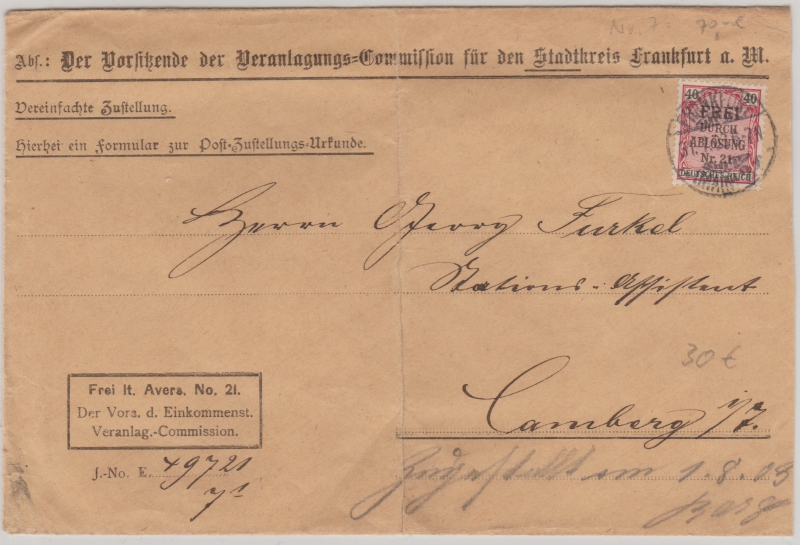 No. 7.
Abs.: Der Vorsitzende der Veranlagungs-Commission für den Stadtkreis Frankfurt a. M.
40 40
FREI
DURCH
ABLÖSUNG
Nr. 21.
DEUTSCHES REICH
Vereinfachte Zustellung.
Hierbei ein Formular zur Post-Zustellungs-Urkunde.
Herrn Georg Furkel
Stations-Assistent
30 €
Camberg i/T.
Frei lt. Avers. No. 21.
Der Vors. d. Einkommenst.
Veranlag.-Commission.
J.-No. E. 49721
Zugestellt am 1.8.03